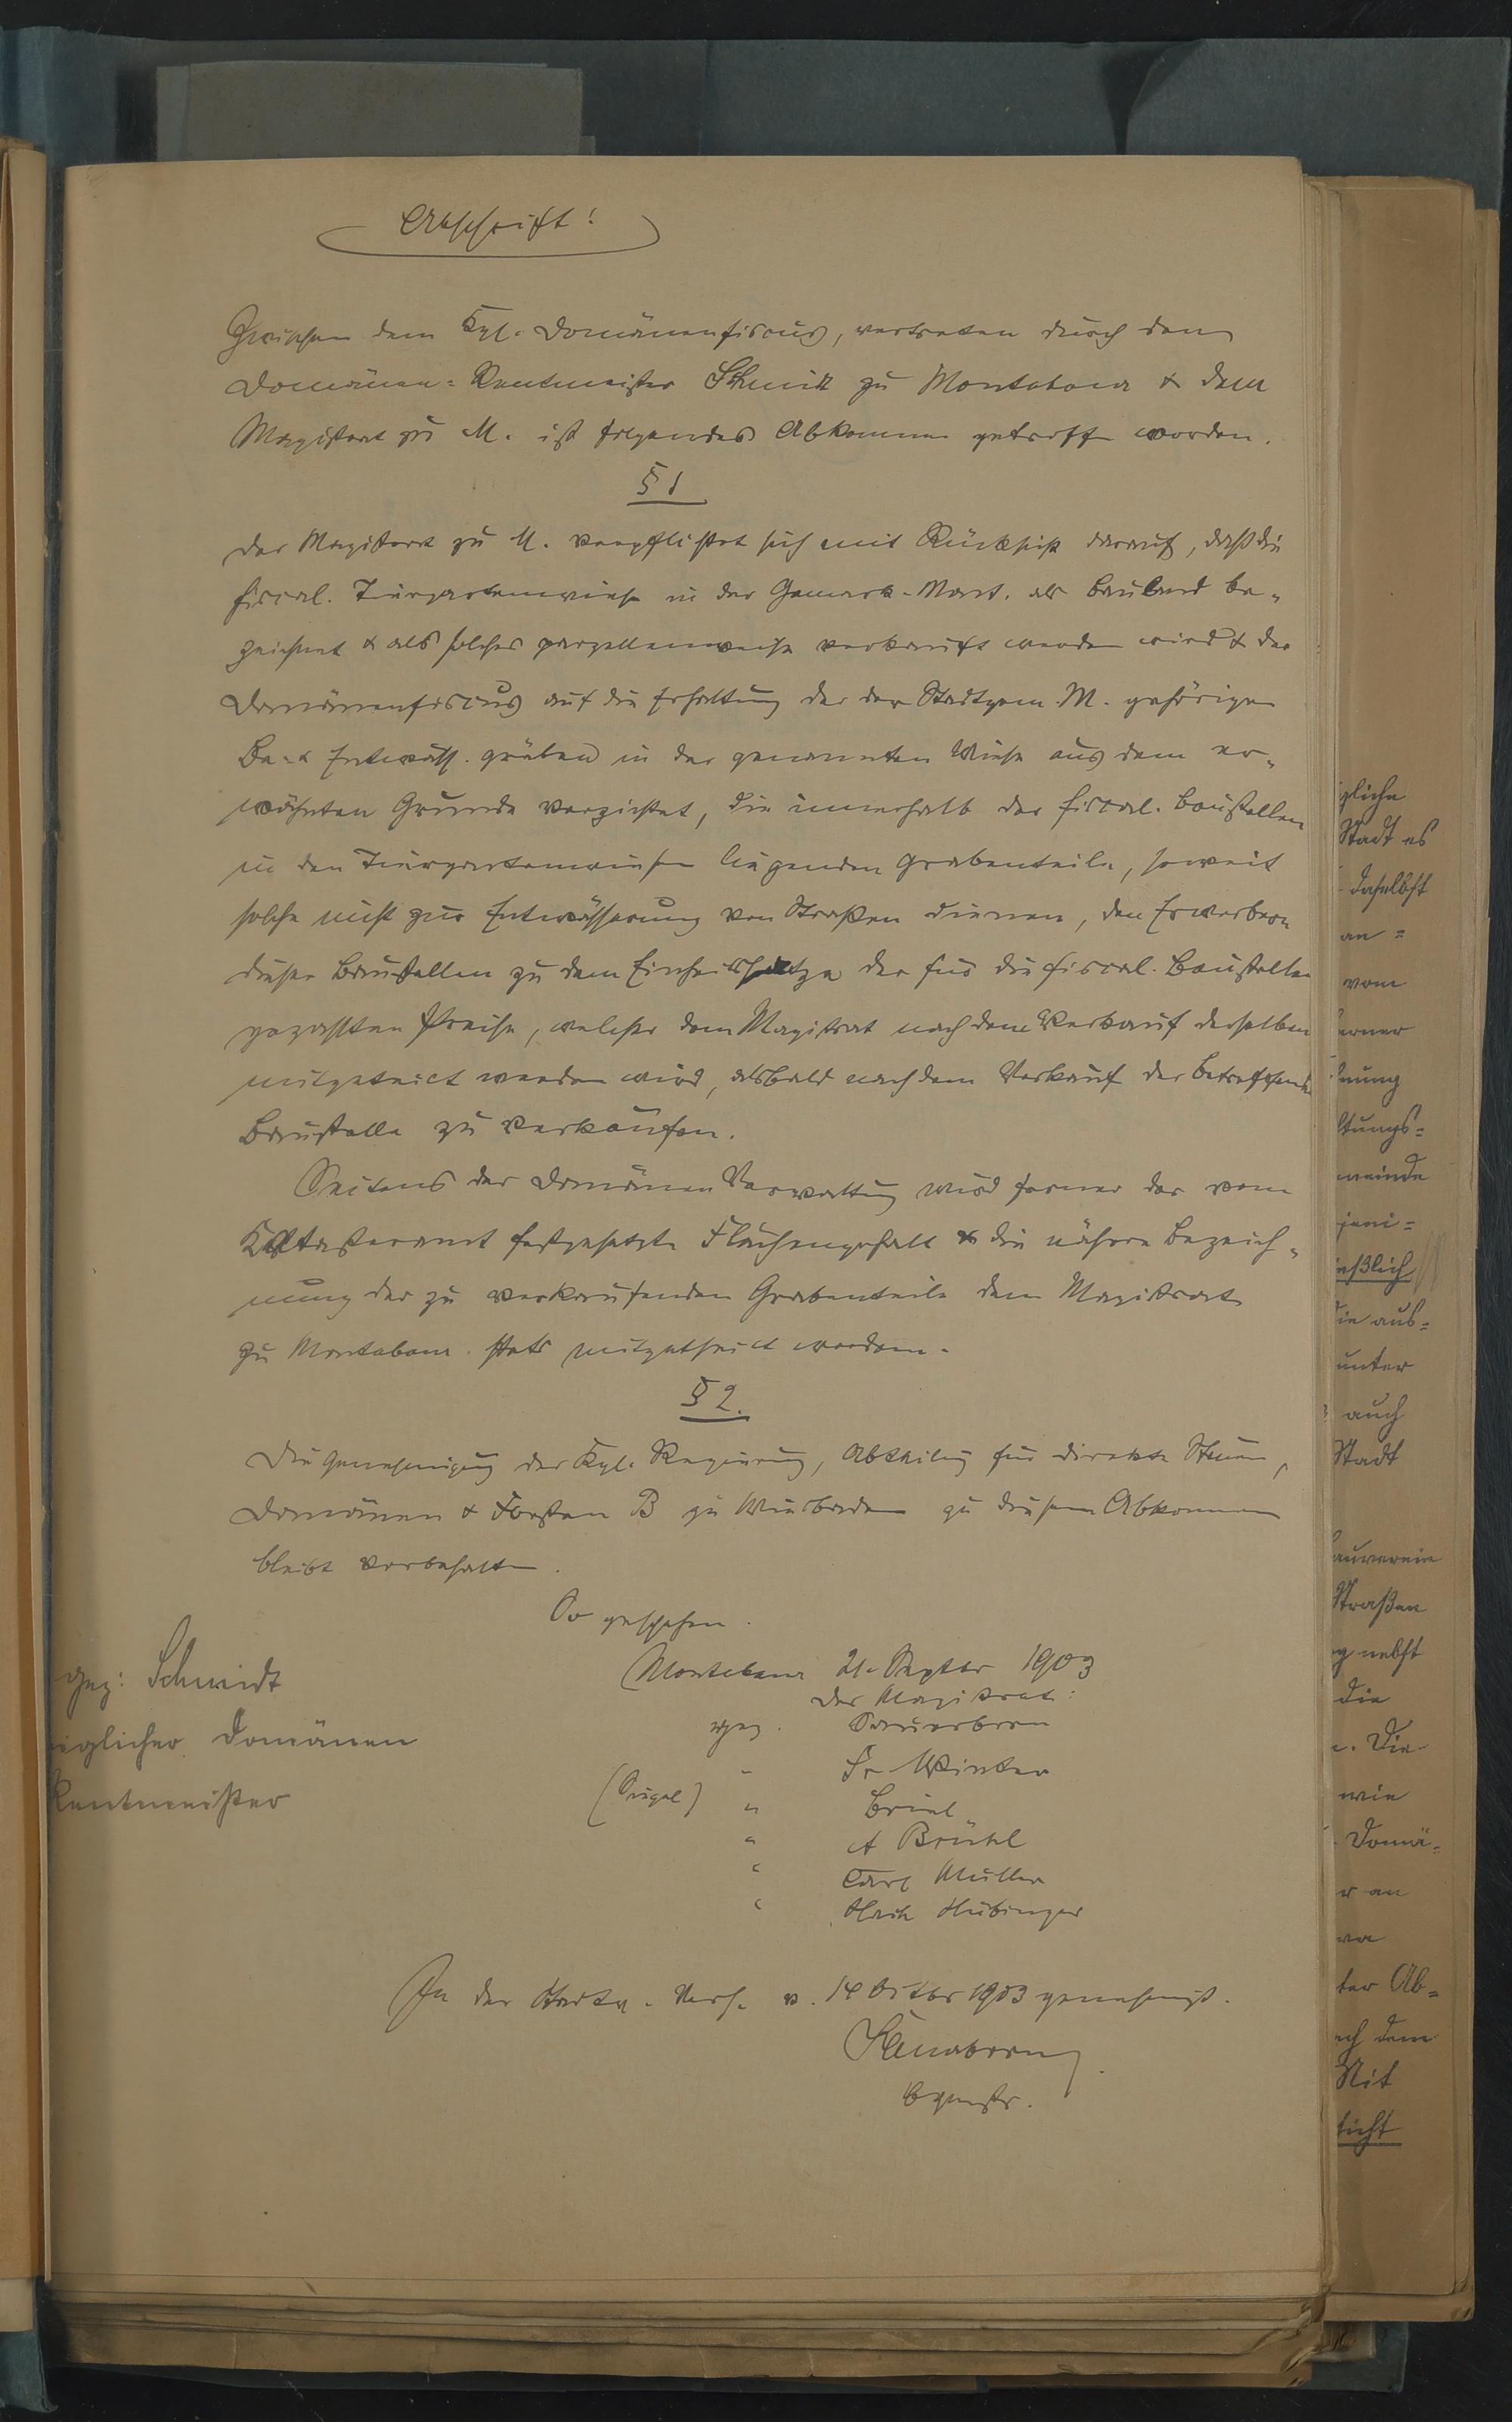 Abschrift!
Zwischen dem Kgl. Domänenfiscus, vertreten durch den
Domänen=Rentmeister Schmidt zu Montabaur & dem
Magistrat zu M. ist folgendes Abkommen getroffen worden.
§ 1
Der Magistrat zu M. verpflichtet sich mit Rücksicht darauf, daß die
fiscal. Tiergartenwiese in der Gemark. Mont. als Bauland be-
zeichnet & als solches parzellenweise verkauft werden wird & der
Domänenfiscus auf die Erhaltung der der Stadtgem. M. gehörigen
Be- & Entwäss. gräben in der genannten Wiese aus dem er-
wähnten Grunde verzichtet, die innerhalb der fiscal. Baustellen
in den Tiergartenwiesen liegenden Grabenteile, soweit
solche nicht zur Entwässerung von Straßen dienen, den Erwerbern
dieser Baustellen zu dem Einheitssatze der für die fiscal. Baustellen
gezahlten Preise, welcher dem Magistrat nach dem Verkauf derselben
mitgeteilt werden wird, alsbald nach dem Verkauf der betreffenden
Baustelle zu verkaufen.
Seitens der Domänen Verwaltung wird ferner der vom
Katasteramt festgesetzte Flächengehalt & die nähere Bezeich-
nung der zu verkaufenden Grabenteile dem Magistrat
zu Montabaur stets mitgetheilt werden.
§ 2.
Die Genehmigung der Kgl. Regierung, Abtheilung für direkte Steuern,
Domänen & Forsten B zu Wiesbaden zu diesem Abkommen
bleibt vorbehalten.
So geschehen.
Montabaur 21. Septbr 1903
gez: Schmidt
Der Magistrat:
iglicher Domänen
gez. Sauerborn
" Fr Winter
Rentmeister
(Siegel) "
" A Brühl
" Carl Müller
" Hübinger
In der Stadtv. Vers. v. 14 Octbr 1903 genehmigt.
Sauerborn
Bgmstr.
gliche
Stadt es
daselbst
an =
vom
erner
nung
ltungs=
meinde
jeni=
eßlich
die aus=
unter
auch
Stadt
auverein
Straßen
g nebst
die
Die
wie
Domä=
r an
ter Ab=
ch dem
Mit
licht